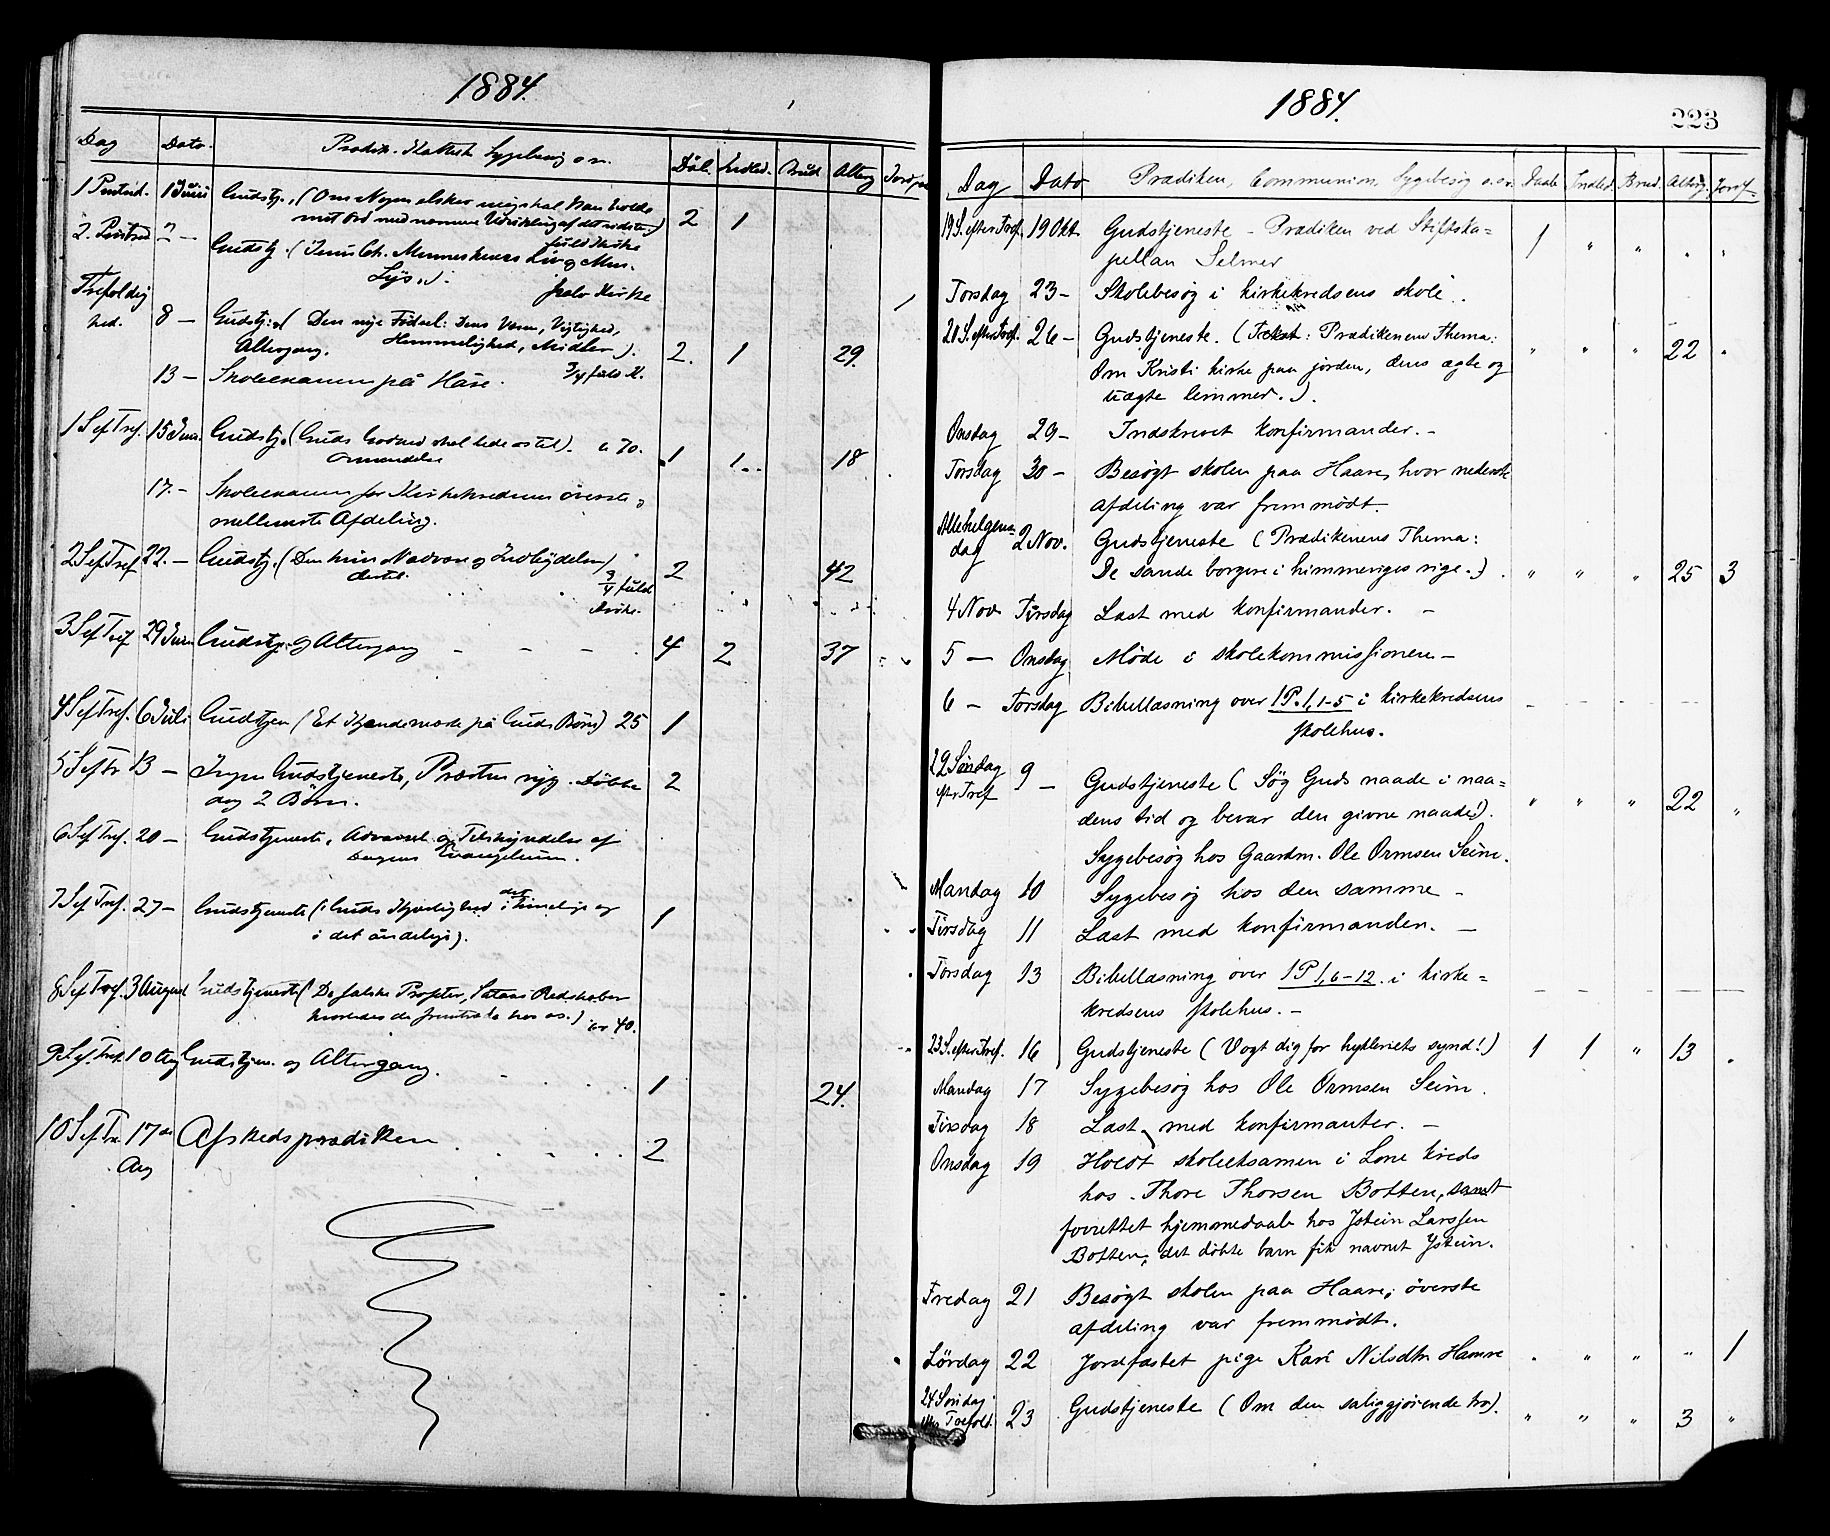 1884.
Dag Dato. Prædik. Kattek. Sygebesøg o.s.v. Dåb. Indled. Brud. Alterg.
1 Pintsd. 1 Juni Gudstj. (Om Nogen elsker mig skal han holde
mit Ord med nærmere Udvikling af det sidste) 2 1
fuld Kirke
2. Pintsed. 2 — Gudstj. (i Jesu Ch. Menneskenes Liv og Men.
Lys.). halv Kirke
Trefoldig
hed. 8 — Gudstj. (Den nye Fødsel: Dens Væsen, Vigtighed,
Altergang. Hemmelighed, Midler). 2. 1 29.
3/4 fuld K.
13 — Skoleexamen på Håre.
1 S ef Tref. 15 Juni. Gudstj. (Guds Godhed skal lede os til). 70. 1 1 18
Omvendelse
17. — Skoleexamen for Kirkekredsens øverste og
mellemste Afdeling.
2 S ef Tref 22. — Gudstj. (Den himm Nadvere og Indbydelsen) 2 42
dertil. 3/4 fuld
Kirke.
3 S ef Tref 29 Juni Gudstj. og Altergang — — — — 4 2 37
4 S ef Tref. 6 Juli Gudstjen (Et Kjendemærke på Guds Børn) 25 1
5 S ef Tr 13 — Ingen Gudstjeneste, Præsten syg. Døbte 2
dog 2 Børn.
6 S ef Tref. 20 — Gudstjeneste. Advarsel og Tilskyndelse af
Dagens Evangelium.
7 S ef Tref. 27 — Gudstjeneste (i Guds Kjærlighed i det timelige og 1
i det åndelige).
8 S ef Tref. 3 August Gudstjeneste (De falske Profeter, Satans Redskaber
hvorledes de fremtræde hos os.) 40.
9 S ef. Tref. 10 Aug Gudstjen. og Altergang. 1 24.
10 S ef Tr 17de Afskedsprædiken 2
Aug
1884. 223
Dag Dato Prædiken, Communion, Sygebesøg o.s.v. Daab Indled. Brud. Alterg. Jordf.
19 S. efter Tref. 19 Okt. Gudstjeneste — Prædiken ved Stiftska= 1 " " " "
pellan Selmer
Torsdag 23 — Skolebesøg i kirkekredsens skole.
20 S. efter Tref. 26 — Gudstjeneste. (Tekst: Prædikenens Thema: " " " 22 "
Om Kristi kirke paa jorden, dens ægte og
uægte lemmer.).
Onsdag 29 — Indskrevet konfirmander. —
Torsdag 30 — Besøgt skolen paa Haare, hvor nederste
afdeling var fremmødt.
Allehelgens
dag 2 Nov. Gudstjeneste (Prædikenens Thema:
De sande borgere i himmeriges rige.). " " " 25 3
4 Nov. Tirsdag Læst med konfirmander. —
5 — Onsdag Møde i skolekommissionen —
6 — Torsdag Bibellæsning over 1 P. 1, 1-5 i kirkekredsens
skolehus.
22 Søndag
efter Tref 9 — Gudstjeneste (Søg Guds naade i naa= " " " 22 "
dens tid og bevar den givne naade!).
Sygebesøg hos Gaardm. Ole Ormsen Seim.
Mandag 10 Sygebesøg hos den samme —
Tirsdag 11 Læst med konfirmanden. —
Torsdag 13 Bibellæsning over 1 P 1, 6-12. i kirke=
kredsens skolehus. —
23 S. efter Tref. 16 Gudstjeneste (Vogt dig for hykleriets synd!) 1 1 " 13 "
Mandag 17 Sygebesøg hos Ole Ormsen Seim.
Tirsdag 18 Læst med konfirmanter. —
Onsdag 19 Holdt skoleeksamen i Lone kreds
hos Thore Thorsen Botten, samt
forrettet hjemmedaab hos Jstein Larssen
Botten; det døbte barn fik navnet Jstein.
Fredag 21 Besøgt skolen paa Haare; øverste
afdeling var fremmødt.
Lørdag 22 Jordfæstet pige Kari Nilsdtr Hamre " " " " 1
24 Søndag
efter Trefolt. 23 Gudstjeneste (Om den saliggjørende tro). " " " 3 "